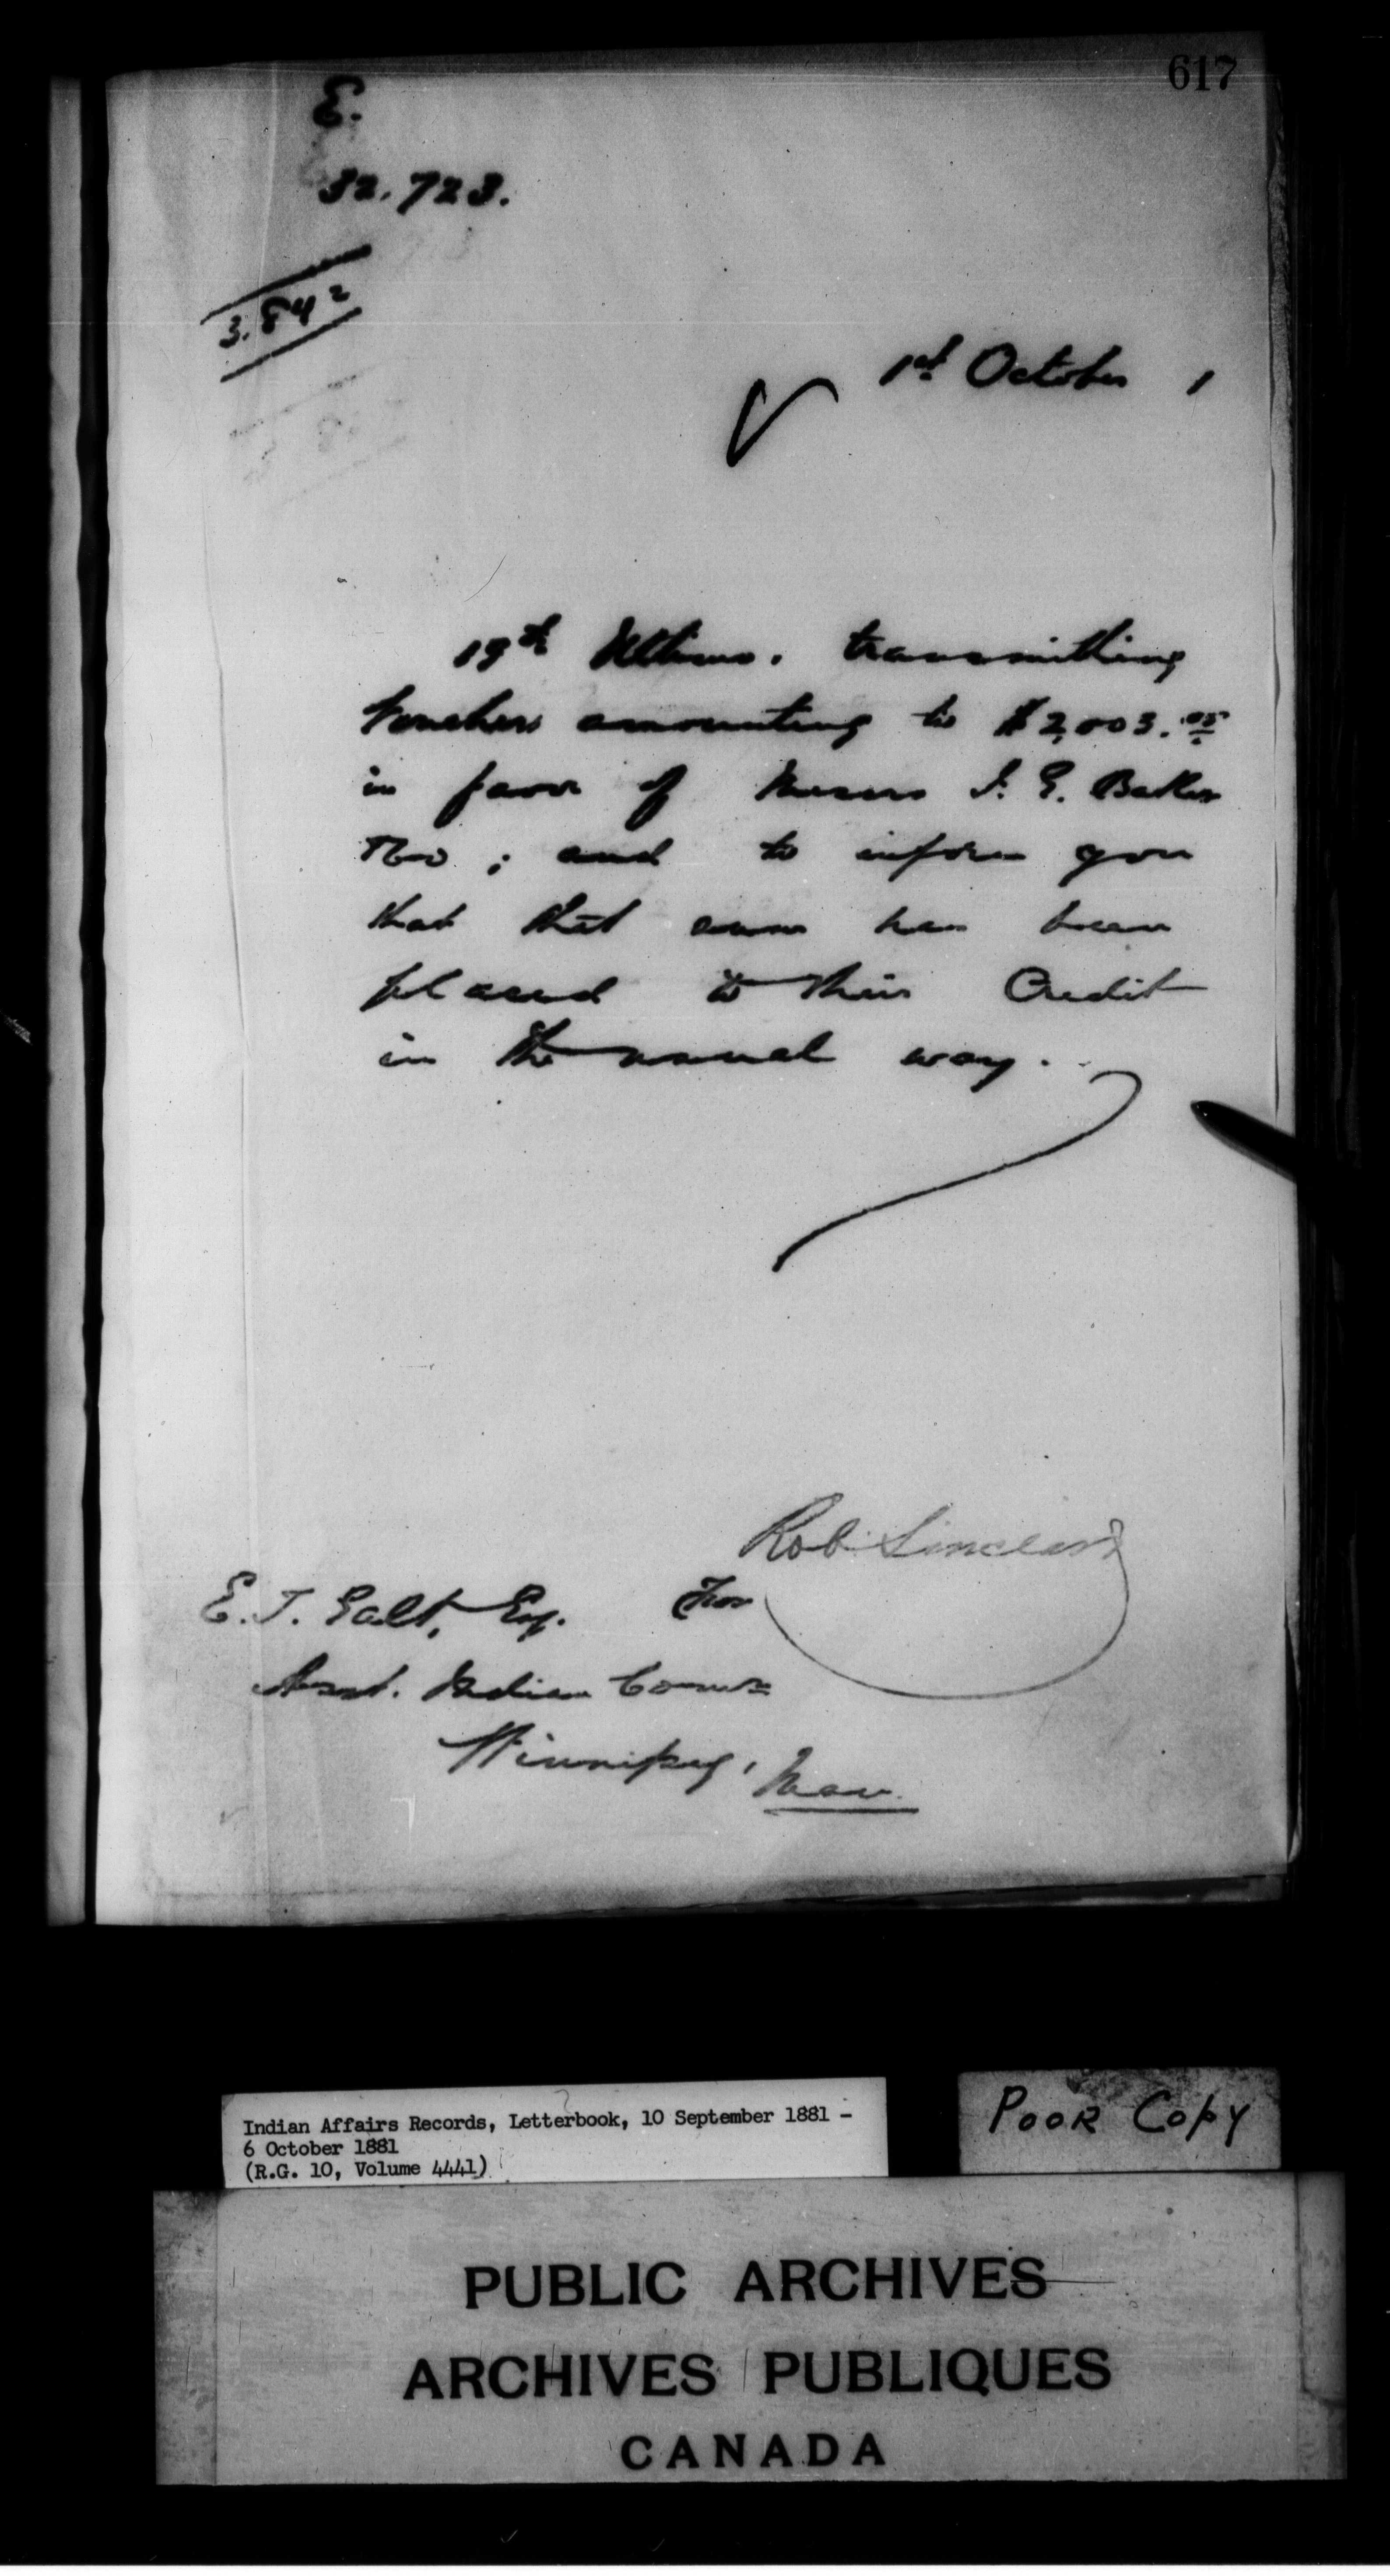 617
E.
32.723.
3.842
1st October 1
19th Ultimo. transmitting
Vouchers amounting to $2,003.05
in favor of Messrs I. G. Baker
&Co ; and to inform you
that that sum has been
placed to their Credit
in the usual way.
Rob Sinclair
E. T. Galt, Esq. For
Asst. Indian Commr
Winnipeg, Man.
Indian Affairs Records, Letterbook, 10 September 1881 -
6 October 1881
(R.G. 10, Volume 4441)
POOR COPY
PUBLIC ARCHIVES
ARCHIVES PUBLIQUES
CANADA